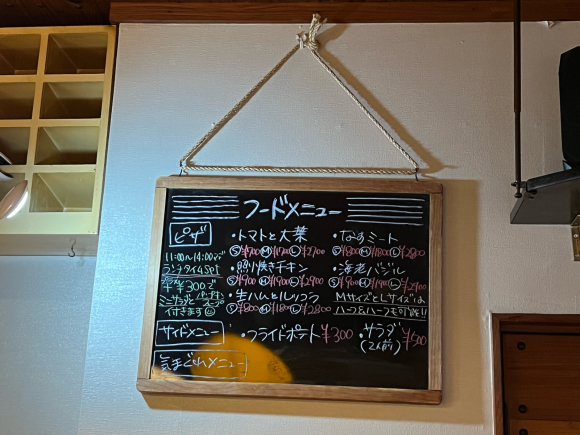 フードメニュー
ピザ
11:00〜14:00まで
ランチタイムSet
¥300で
ミニサラダと
付きます
・トマトと大葉
Ⓢ¥700 Ⓜ¥1700 Ⓛ¥2700
・照り焼きチキン
Ⓢ¥900 Ⓜ¥1900 Ⓛ¥2900
・生ハムとルッコラ
Ⓢ¥800 Ⓜ¥1800 Ⓛ¥2800
・なすミート
Ⓢ¥800 Ⓜ¥1800 Ⓛ¥2800
・海老バジル
Ⓢ¥900 Ⓜ¥1900 Ⓛ¥2900
MサイズとLサイズは
ハーフ&ハーフも可能!!
サイドメニュー
・フライドポテト ¥300
・サラダ ¥500
(2人前)
気まぐれメニュー